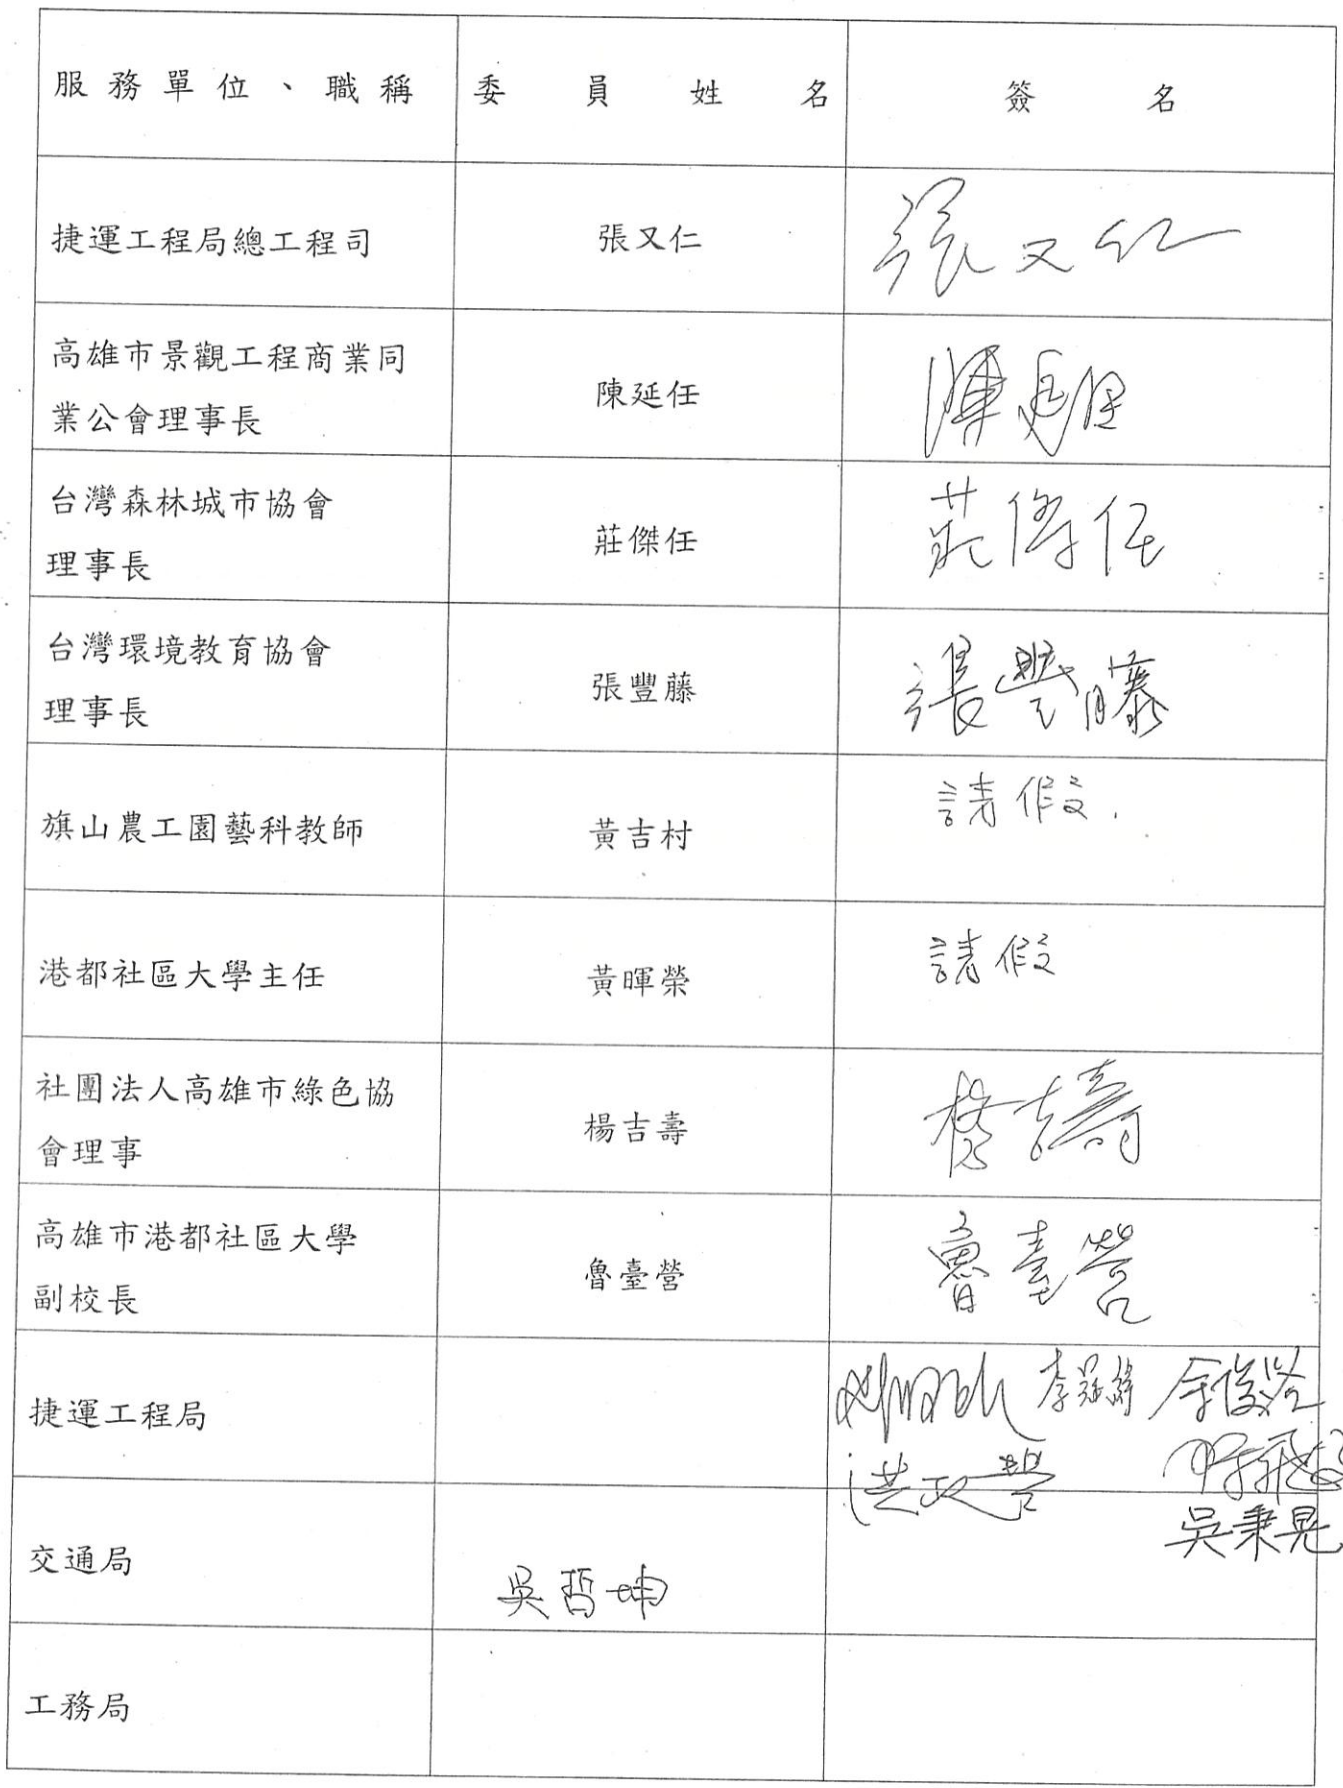 服務單位、職稱 委員姓名 簽名
捷運工程局總工程司 張又仁 張又仁
高雄市景觀工程商業同
業公會理事長
陳延任 陳延任
台灣森林城市協會
理事長
莊傑任 莊傑任
台灣環境教育協會
理事長
張豐藤 張豐藤
旗山農工園藝科教師 黃吉村 請假.
港都社區大學主任 黃暉榮 請假
社團法人高雄市綠色協
會理事
楊吉壽 楊吉壽
高雄市港都社區大學
副校長
魯臺營 魯臺營
捷運工程局
洪政營
吳秉晃
交通局 吳哲坤
工務局